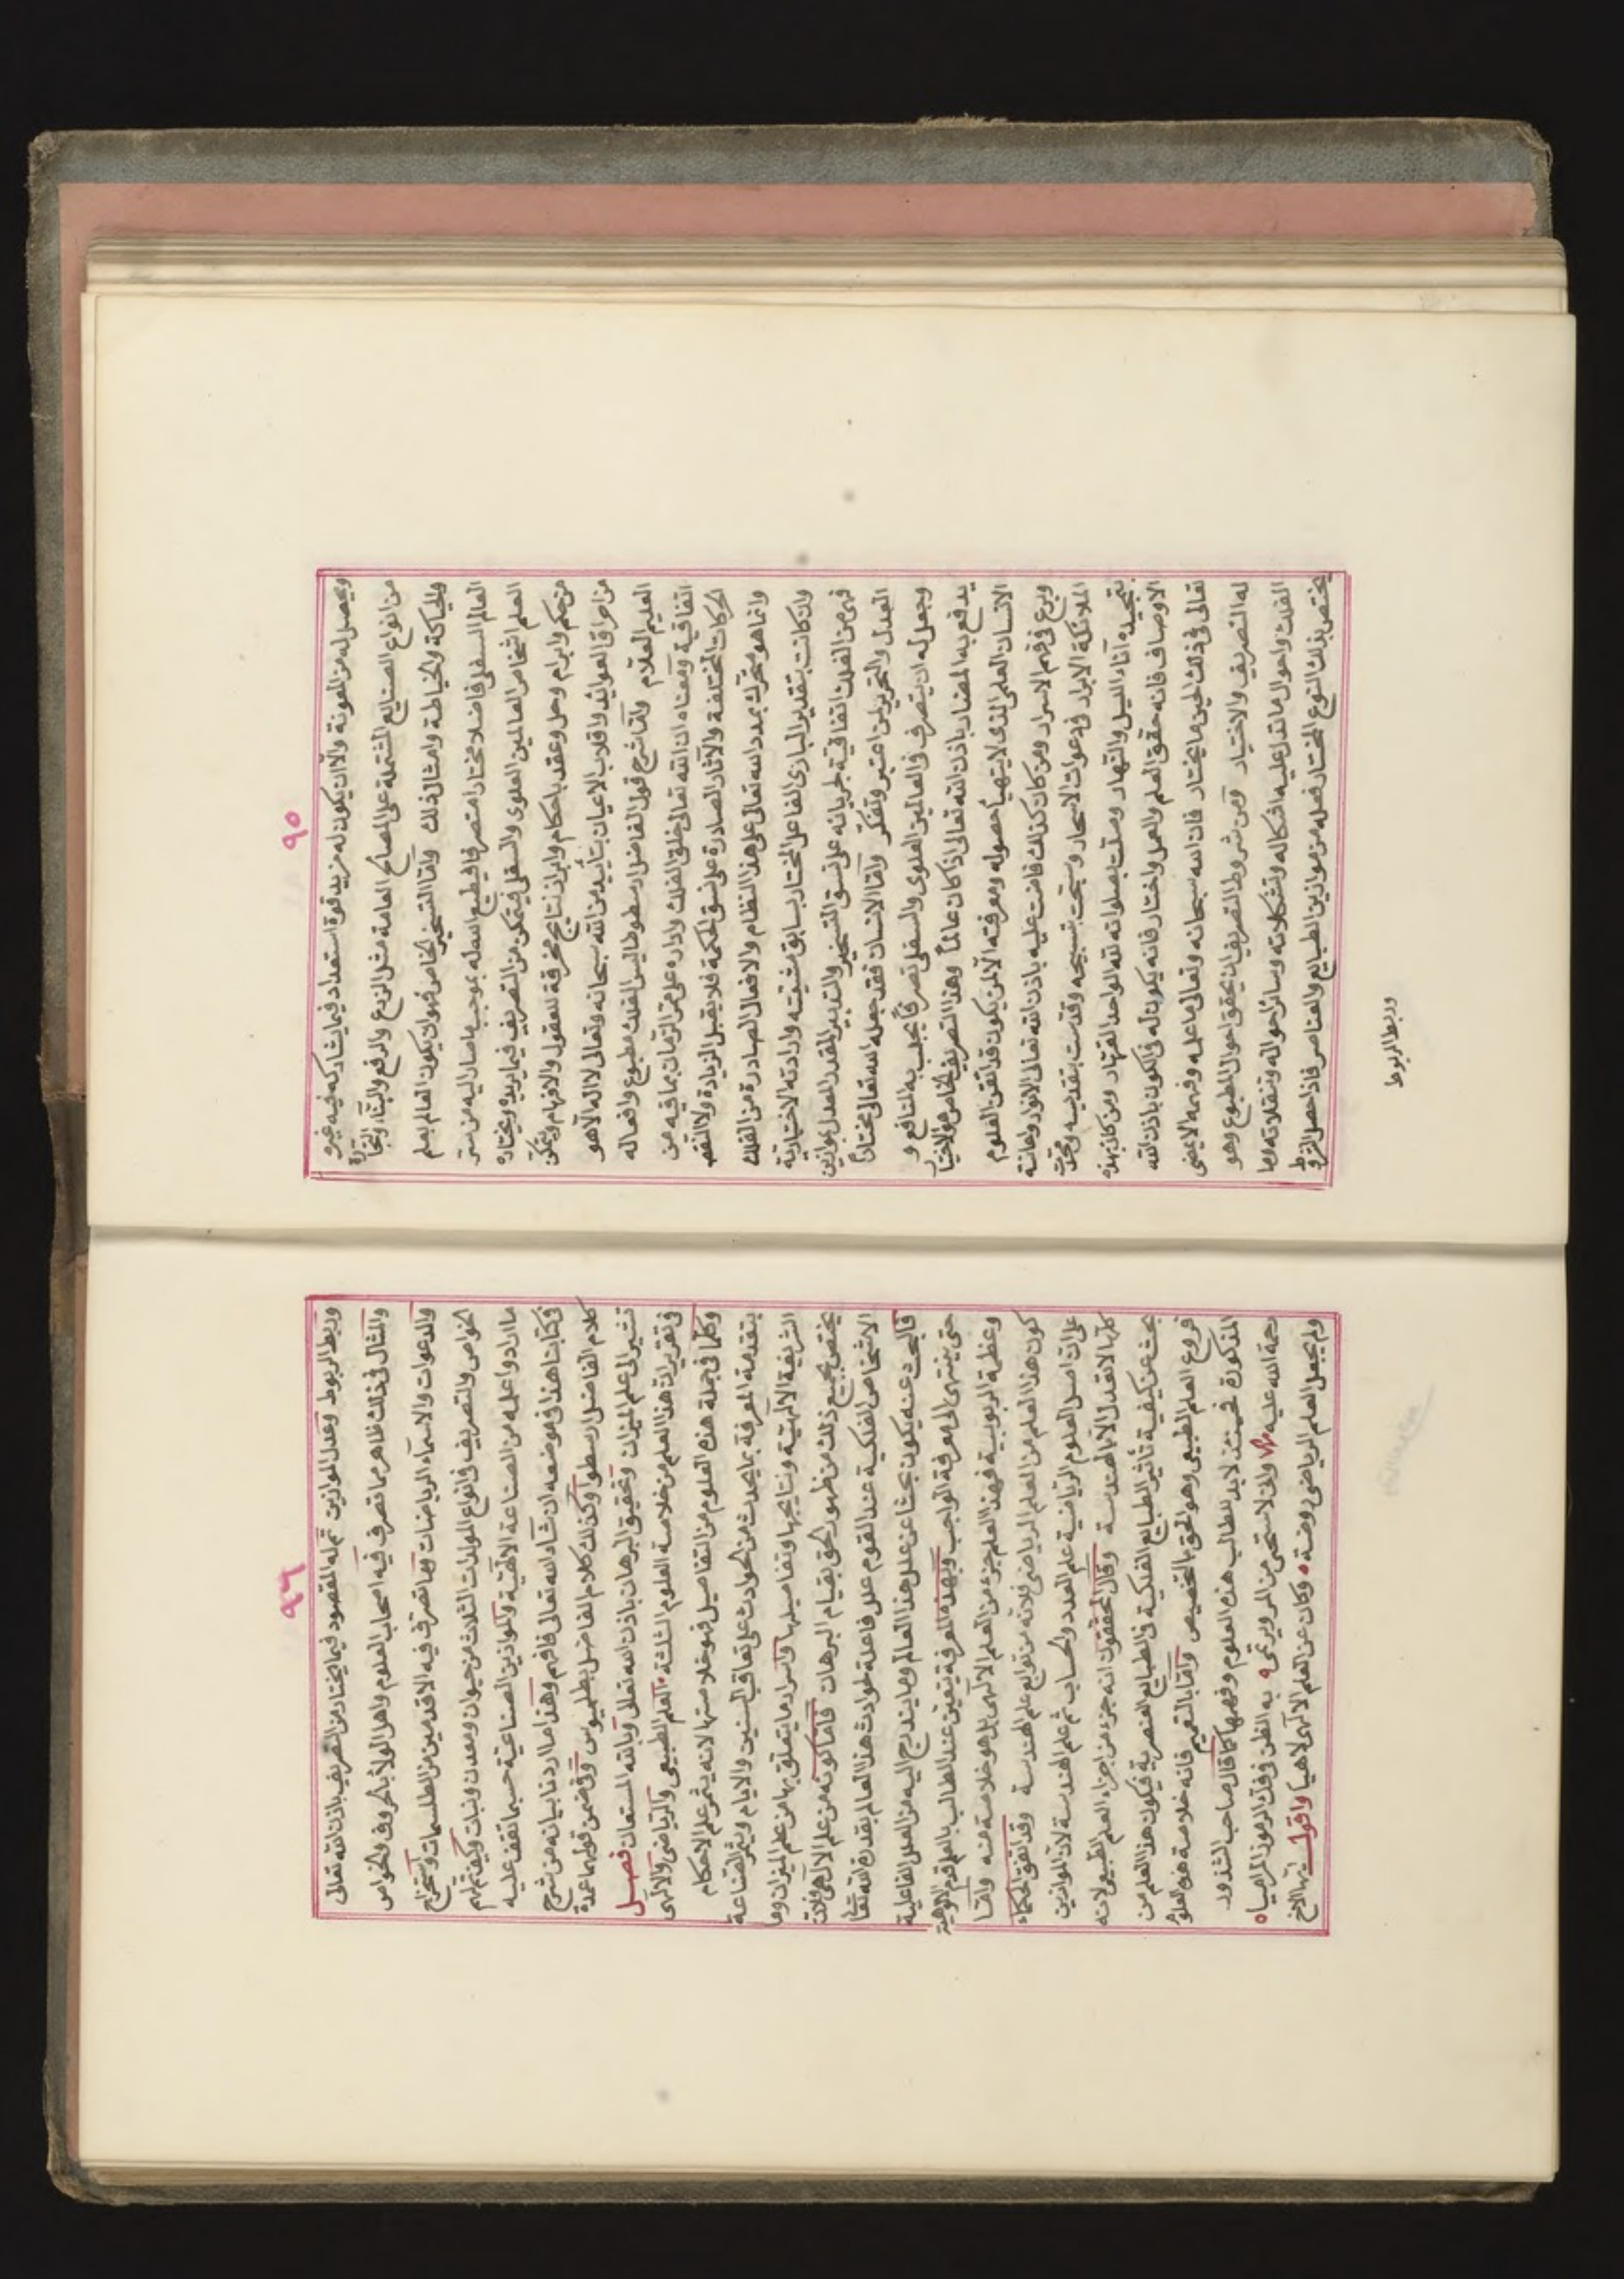 ٩٥
ويحصل له من المعونة والآن يكون له مزيد قوة استعداد فيما يشاركه فيه غيره
من انواع الصنايع المشتملة على المصالح العامة مثل الزرع والرفع والبناء والنجارة
والحياكة والخياطة وامثال ذلك واما التسخير الخاص فهو ان يكون العالم بعلم
العالم السفلى فاضلا مختارا متصرفا فيطيع الله له بموجب ما صار اليه من ستر
العلم اشخاص العالمين العلوى والسفلى فيتمكن من التصريف فيما يريده ويختاره
من حكم وابرام وحل وعقد باحكام وابراز نتايج مخرقة للعقول والافهام ويتمكن
من احراق العوايد واقلاب الاعيان بتأييد من الله سبحانه وتعالى لا اله الا هو
العليم العلام واما شرح قول الفاضل ارسطوطاليس الفلك مطبوع وافعاله
اتفاقية ومعناه ان الله تعالى خلق الفلك واداره على مر الزمان بما فيه من
الحركات المختلفة والآثار الصادرة على نسق الحكمة فلا يقبل الزيادة ولا النقص
وانما هو متحرك بمدد الله تعالى على هذا النظام والافعال الصادرة من الفلك
وان كانت بتقدير البارى الفاعل المختار بسابق مشيئته وارادته الاختيارية
فهى من الفلك اتفاقية لجريانه على نسق التسخير والتدبير المقدر المعدل بموازين
العدل والتحرير لمن اعتبر وتفكر واما الانسان فقد جعله الله تعالى مختاراً
وجعل له ان يتصرف في العالمين العلوى والسفلى تصرفاً يجلب به المنافع و
يدفع به المضار باذن الله تعالى اذا كان عالماً وهذا التصريف الخاص هو الاختيار
الانسان العلمى الذى لا يتهيأ حصوله ومعرفته الا لمن يكون قد اتقن العلوم
وبرع في فهم الاسرار ومن كان كذلك فاضت عليه باذن الله تعالى الانوار واعانته
الملائكة الابرار في دعوات الاسحار وسبحت بتسبيحه وقدست بتقديسه ومجدت
بتمجيده آناء الليل والنهار وصلت بصلواته لله الواحد القهار ومن كان بهذه
الاوصاف فانه حقق العلم والعمل واختار فانه يكون له في الكون باذن الله
تعالى في ذلك الحين ما يختار فان الله سبحانه وتعالى ما علمه وفهمه الا ليمضى
له التصريف والاختيار ومن شروط التصريف ان يحقق احوال المطبوع وهو
الفلك واحوال ما تدل عليه اشكاله وتشكلاته وسائر احواله وتنقلاته وما
يختص بذلك النوع المختار فعله من موازين الطبايع والعناصر فاذا حصل الشروط
وربط الربوط
٩٦
وربط الربوط وعدل الموازين ثم له المقصود فيما يختار من التصريف باذن الله تعالى
والمثال في ذلك ظاهر مما تصرف فيه اصحاب العلوم واهل الولاء بالحروف والخواص
والدعوات والاسماء الرياضات وما تصرف فيه الاقدمين من الطلسمات واستخراج
الخواص والتصريف في انواع المولدات الثلاث من حيوان ومعدن ونبات وكيف تم لهم
ما ارادوا علمه من الصناعة الالهية والموازين الصناعية حسبما تقف عليه
في كتابنا هذا في موضعه ان شاء الله تعالى فافهم وهذا ما اردنا بيانه من شرح
كلام الفاضل ارسطو وكذلك كلام الفاضل بطلميوس وفي ضمن قولهما عمدة
تشير الى علم الميزان وتحقيق البرهان باذن الله تعالى وبالله المستعان فصـل
في تقرير ان هذا العلم من خلاصة العلوم الثلثة العلم الطبيعى والرياضى والالهى
وكلما في جملة هذه العلوم من التفاصيل فهو خلاصتها لانه يثمر علم الاحكام
بتقدمة المعرفة بما يحدث من الحوادث على تعاقب السنين والايام ويثمر الصناعة
الشريفة الالهية ونتايجها وتفاصيلها واسرار ما يتعلق بها من علم الميزان وما
يختص بجميع ذلك من ظهور الحق بقيام البرهان فاما كونه من علم الالهى فلان
الاشخاص الفلكية عند القوم علل فاعلة لحوادث هذا العالم بقدرة الله تعالى
فالبحث عنه يكون بحثا عن علل هذا العالم وما يندرج اليه من العلل الفاعلية
حتى ينتهى الى معرفة الواجب وبهذه المعرفة يتعين عند الطالب بالعلم قدم الالوهية
وعظمة الربوبية فهذا العلم جزء من العلم الالهى بل هو خلاصة منه واما
كون هذا العلم من العلم الرياضى فلانه من توابع علم الهندسة وقد اتفق الحكماء
على ان اصل العلوم الرياضية علم العدد والحساب ثم علم الهندسة لان الموازين
كلها لا تعدل الا بالهندسة وقال المحققون انه جزء من اجزاء العلم الطبيعى لانه
بحث عن كيفية تأثير الطبايع الفلكية في الطبايع العنصرية فيكون هذا العلم من
فروع العلم الطبيعى وهو الحق بالتخصيص واما بالتعميم فانه خلاصة هذه العلوم
المذكورة فحينئذ لا بد لطالب هذه العلوم وفهمها كما قال صاحب الشذور
رحمة الله عليه وانى لاستحى من المرء يرتمى به الظن في فك الرموز المراميا
ولم يجعل العلم الرياضى روضة وكان عن العلم الالهى لاهيا واقول ايها الاخ